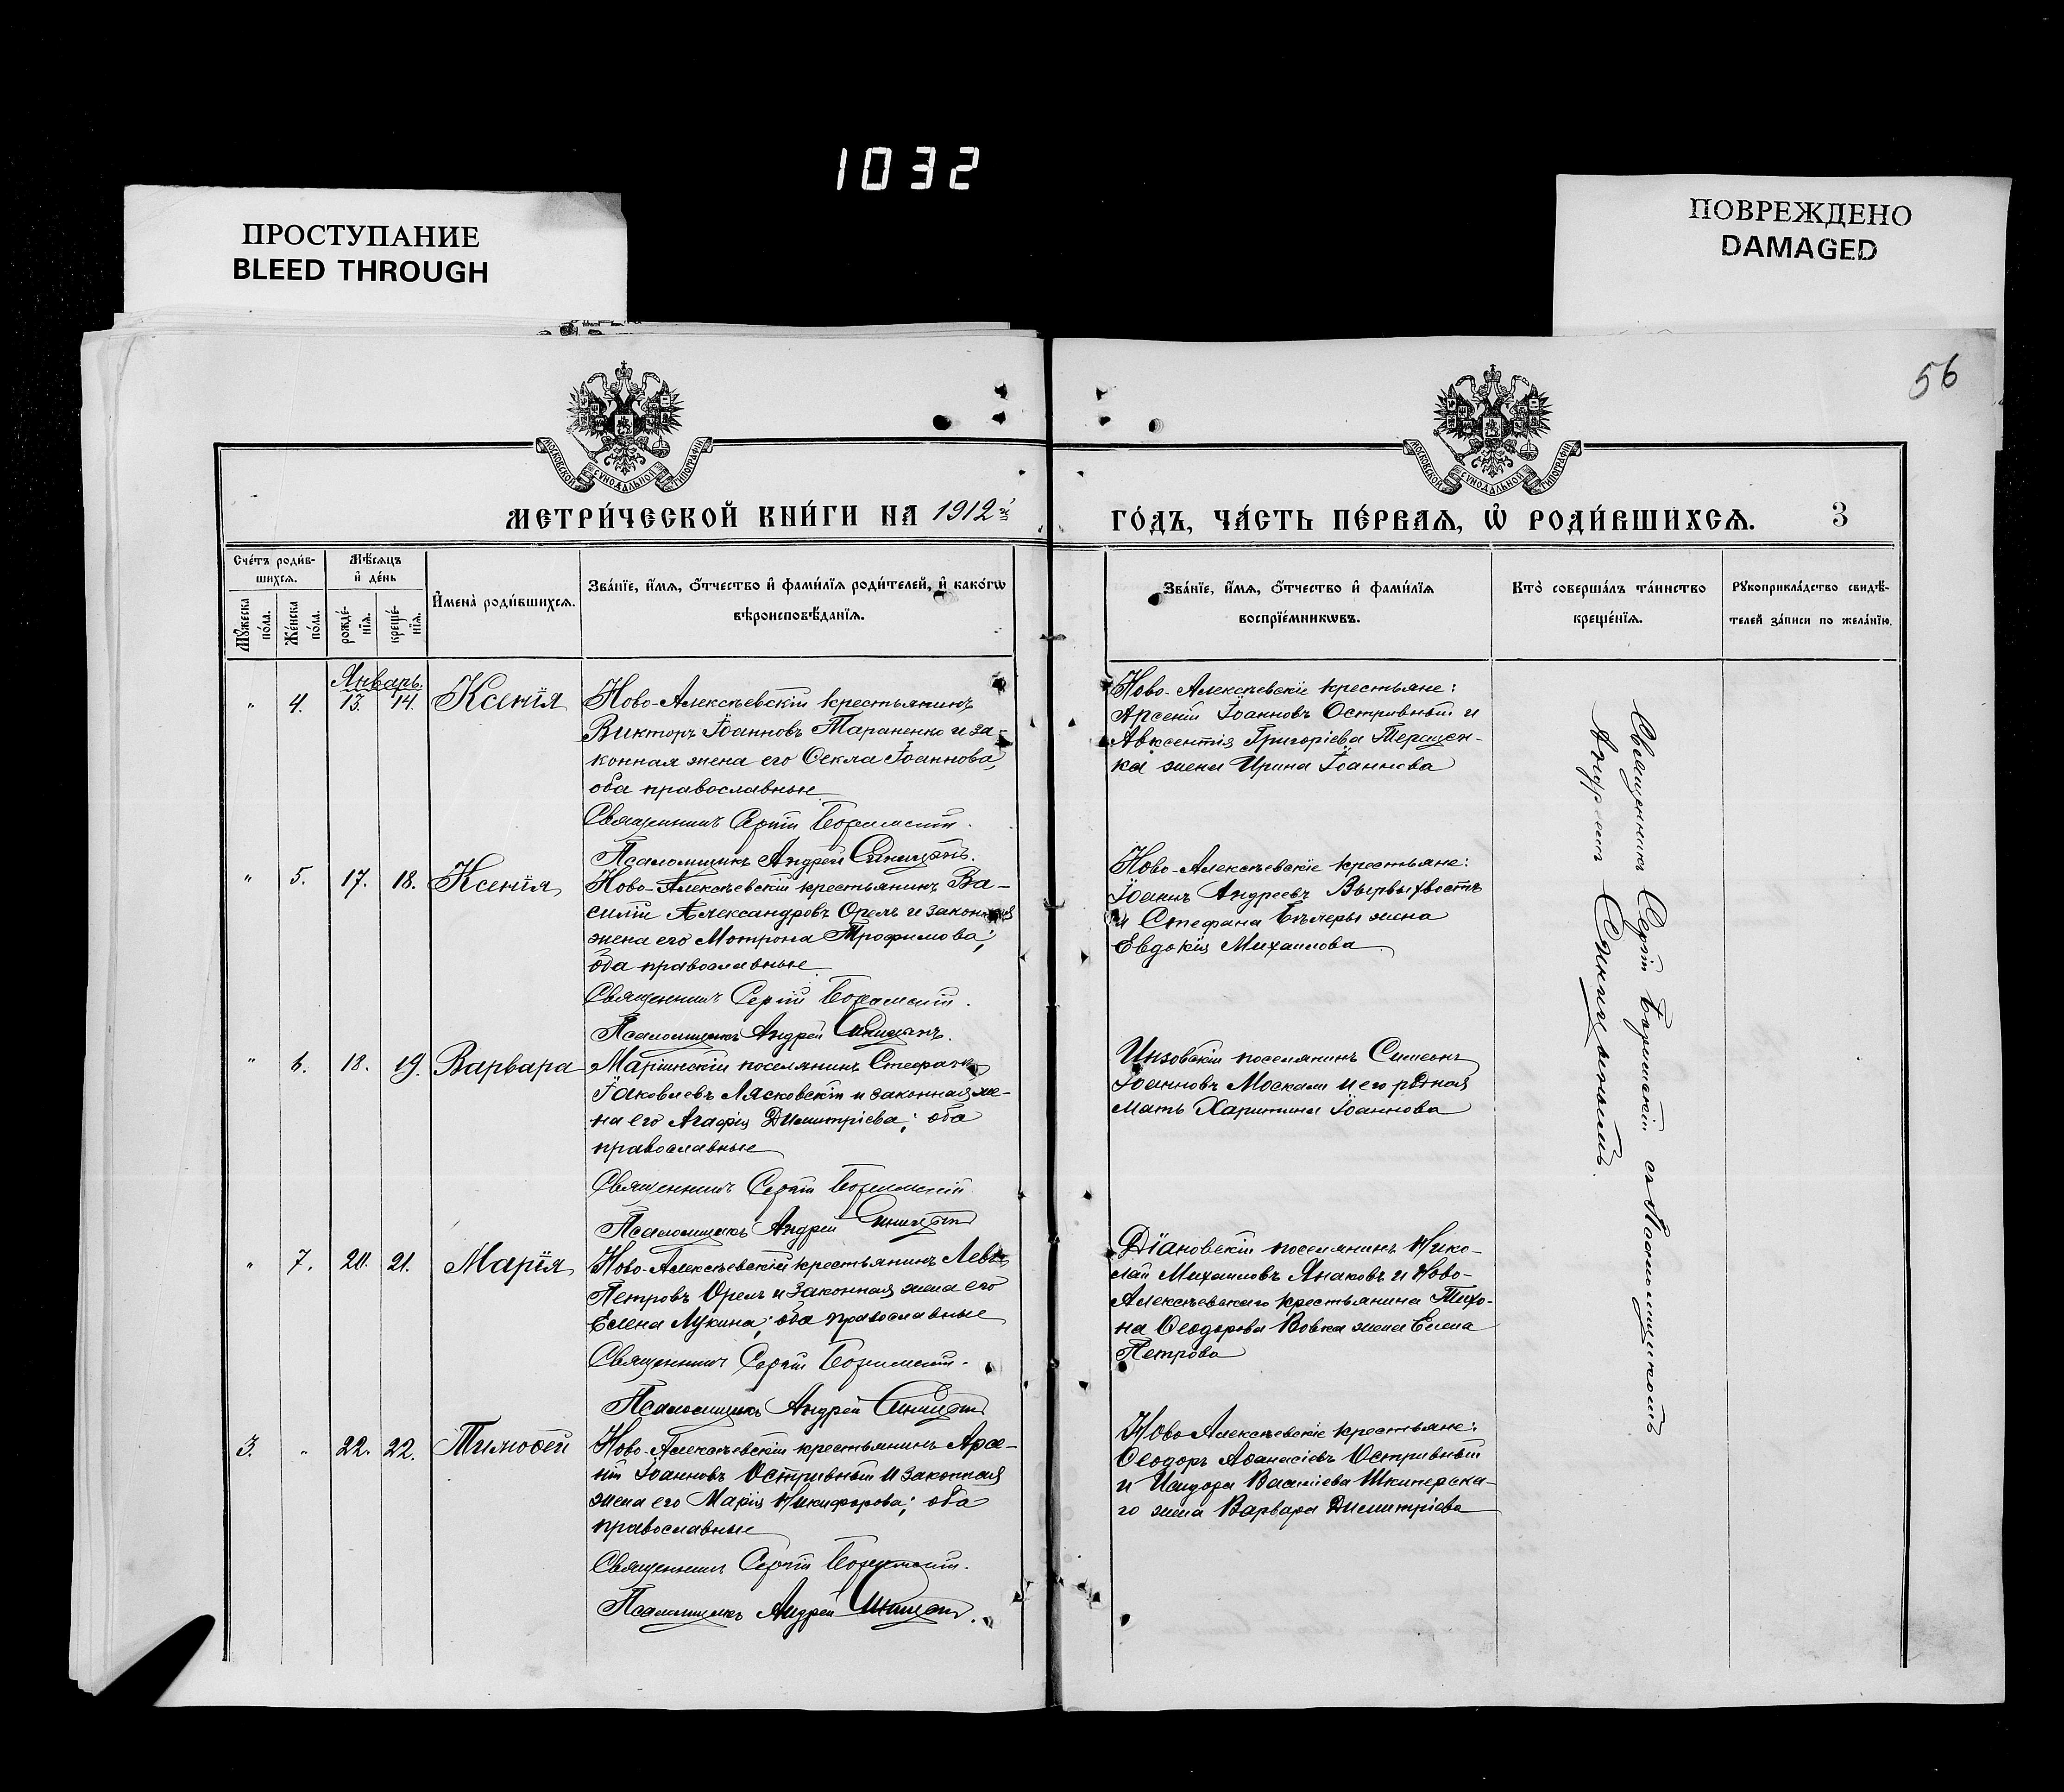 1032
ПРОСТУПАНИЕ
BLEED THROUGH
ПОВРЕЖДЕНО
DAMAGED
56
МОСКОВСКОЙ СѴНОДАЛЬНОЙ ТИПОГРАФІИ
МОСКОВСКОЙ СѴНОДАЛЬНОЙ ТИПОГРАФІИ
МЕТРИ́ЧЕСКОЙ КНИ́ГИ НА 1912й
ГО́ДЪ, ЧА́СТЬ ПЕ́РВАѦ, Ѡ҆ РОДИ́ВШИХСѦ. 3
Сче́тъ роди́в-
шихсѧ.
Мꙋ́жеска по́ла.
Же́нска по́ла.
Мѣ́сѧцъ
и҆ де́нь
рожде́-нїѧ.
креще́-нїѧ.
И҆мена̀ роди́вшихсѧ.
Зва́нїе, и҆́мѧ, ѻ҆́тчество и҆ фами́лїѧ роди́телей, и҆ како́гѡ
вѣроисповѣ́данїѧ.
Зва́нїе, и҆́мѧ, ѻ҆́тчество и҆ фами́лїѧ
воспрїе́мникѡвъ.
Кто̀ соверша́лъ та́инство
креще́нїѧ.
Рꙋкоприкла́дство свидѣ́-
телей за́писи по жела́нїю.
Январь.
" 4. 13. 14. Ксенія
Ново-Алексѣевскій крестьянинъ
Викторъ Іоанновъ Тараненко и за-
конная жена его Ѳекла Іоаннова,
оба православные
Священникъ Сергій
Псаломщикъ Андрей Синицынъ.
Ново-Алексѣевскіе крестьяне:
Арсеній Іоанновъ Остривный и
Авксентія Григоріева Терещен-
ка жена Ирина Іоаннова
" 5. 17. 18. Ксенія
Ново-Алексѣевскій крестьянинъ Ва-
силій Александровъ Орелъ и законная
жена его Мотрона Трофимова;
оба православные
Священникъ Сергій
Псаломщикъ Андрей Синицынъ.
Ново-Алексѣевскіе крестьяне:
Іоаннъ Андреевъ Вырвыхвостъ
и Стефана Бѣлеры жена
Евдокія Михаилова
" 6. 18. 19. Варвара
Маріинскій поселянинъ Стефанъ
Іаковлевъ Лясковскій и законная же-
на его Агафія Димитріева; оба
православные
Священникъ Сергій
Псаломщикъ Андрей Синицынъ
Инзовскій поселянинъ Симеонъ
Іоанновъ Москали и его родная
мать Харитина Іоаннова
" 7. 20. 21. Марія
Ново-Алексѣевскій крестьянинъ Левъ
Петровъ Орелъ и законная жена его
Елена Лукина; оба православные
Священникъ Сергій
Псаломщикъ Андрей Синицынъ
Діановскій поселянинъ Нико-
лай Михаиловъ Янаковъ и Ново-
Алексѣевскаго крестьянина Тихо-
на Ѳеодорова Вовка жена Елена
Петрова
3. " 22. 22. Тимоѳей
Ново-Алексѣевскій крестьянинъ Арсе-
ній Іоанновъ Остривный и законная
жена его Марія Никифорова; оба
православные
Священникъ Сергій
Псаломщикъ Андрей Синицынъ.
Ново-Алексѣевскіе крестьяне:
Ѳеодоръ Аѳанасіевъ Остривный
и Исидора Василіева Шкиперска-
го жена Варвара Димитріева
Священникъ Сергій съ Псаломщикомъ
Андреемъ Синицынымъ.